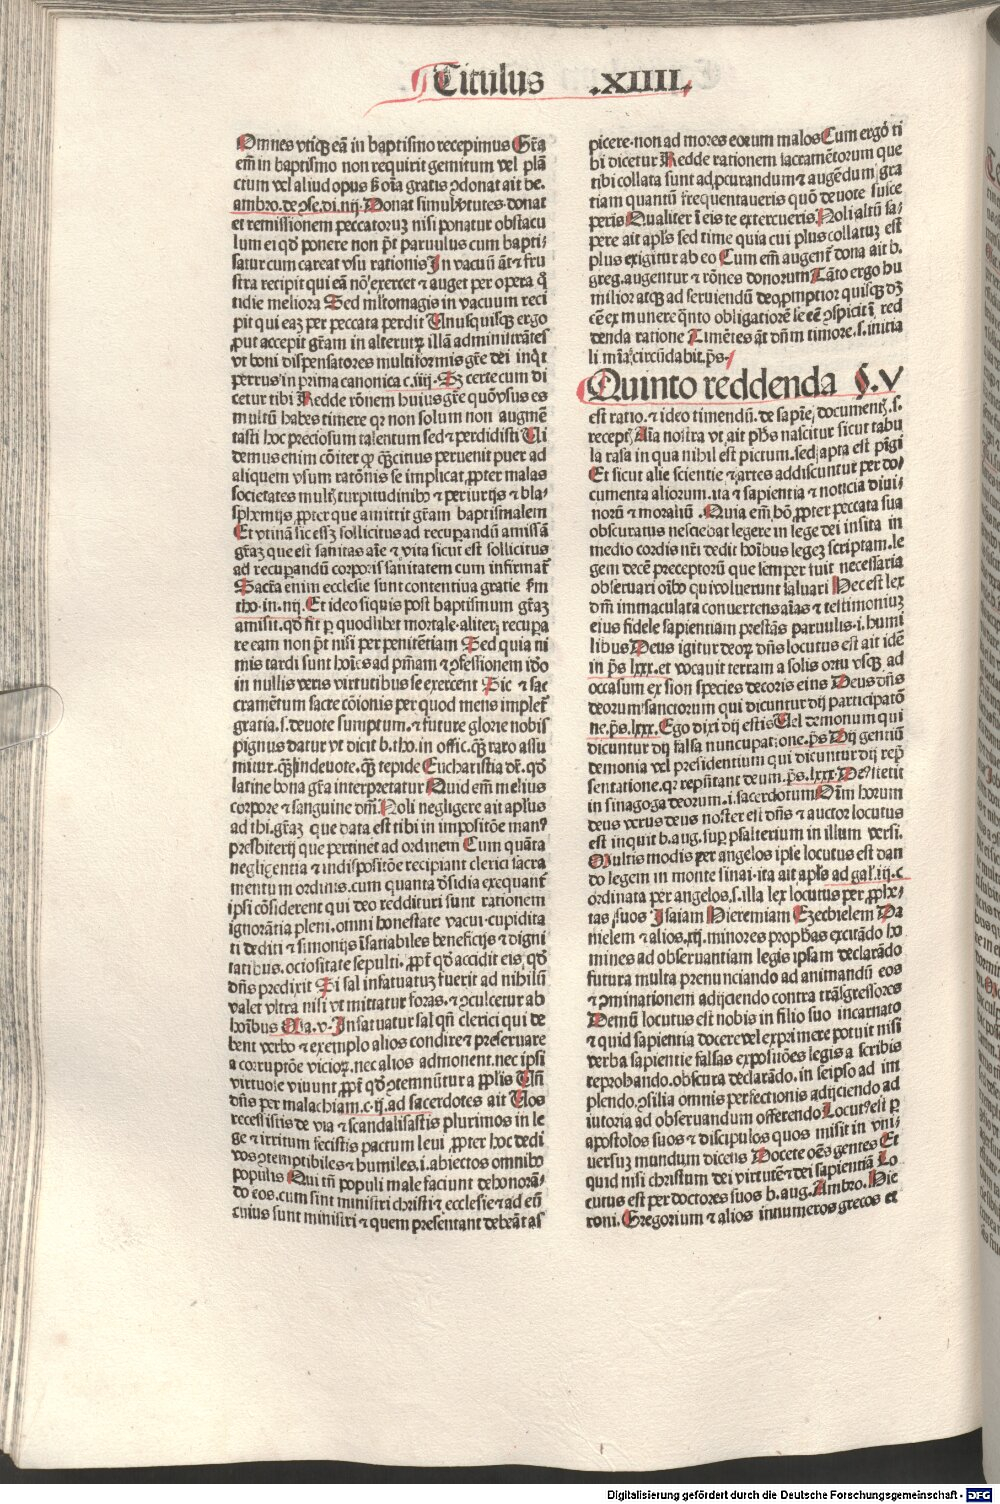 Titulus .XIIII.
Omnes vtiqꝫ eã in baptismo recepimus Gr̃a
em̃ in baptismo non requirit gemitum vel plã
ctum vel aliud opus ß oĩa gratis ꝯdonat ait be.
ambro. de ꝯse. di. iiij. Donat simul v̾tutes donat
et remissionem peccatorum nisi ponatur obstacu
lum ei qđ ponere non põt paruulus cum bapti-
satur cum careat vsu rationis In vacuũ aũt ⁊ fru
stra recipit qui eã nõ exercet ⁊ auget per opera q̃
tidie meliora Sed mltomagis in vacuum reci
pit qui eaꝫ per peccata perdit Unusquisqꝫ ergo
put accepit gr̃am in alterutrꝝ illã administrãtes
vt boni dispensatores multiformis gr̃e dei inqͥt
petrus in prima canonica c. iiij. Sꝫ certe cum di
cetur tibi Redde rõnem huius gr̃e quõ vsus es
multũ habes timere qꝛ non solum non augmẽ
tasti hoc preciosum talentum sed ⁊ perdidisti Ui
demus enim cõiter ꝙ qꝫcitius peruenit puer ad
aliquem vsum ratõnis se implicat ꝓpter malas
societates mult turpitudinibꝰ ⁊ periurijs ⁊ bla-
sphemijs ꝓpter que amittit gr̃am baptismalem
Et vtinã sic esset sollicitus ad recuꝑandũ amissã
gr̃aꝫ que est sanitas aĩe ⁊ vita sicut est sollicitus
ad recuꝑandũ corporis sanitatem cum infirmat̃
Sacr̃a enim ecclesie sunt contentiua gratie ẜm
tho. in. iiij. Et ideo siquis post baptismum gr̃aꝫ
amisit. qđ fit ꝑ quodlibet mortale. aliter recupa
re eam non põt nisi per penitẽtiam Sed quia ni
mis tardi sunt hoĩes ad pñiam ⁊ ꝯfessionem iđo
in nullis veris virtutibus se exercent Sic ⁊ sac
cramẽtum sacre cõionis per quod mens implet̃
gratia. s. deuote sumptum. ⁊ future glorie nobis
pignus datur vt dicit b. tho. in offic. qꝫ raro assu
mitur. qꝫ indeuote. qꝫ tepide Eucharistia dr̃. qđ
latine bona gr̃a interpretatur Quid em̃ melius
corpore ⁊ sanguine dñi Noli negligere ait ap̃lus
ad thi. gr̃aꝫ que data est tibi in impositõe manꝰ
presbiterij que pertinet ad ordinem Cum quãta
negligentia ⁊ indispositõe recipiant clerici sacra
mentum ordinis. cum quanta ꝺsidia exequant̃
ipsi cõsiderent qui deo reddituri sunt rationem
ignorãtia pleni. omni honestate vacui. cupidita
ti dediti ⁊ simonijs ĩsatiabiles beneficijs ⁊ digni
tatibus. ociositate sepulti. ꝓpt̃ qđ accidit eis. qđ
dñs predixit Si sal infatuatuꝫ fuerit ad nihilũ
valet vltra nisi vt mittatur foras. ⁊ ꝯculcetur ab
hoĩbus Ma. v. Infatuatur sal qñ clerici qui de
bent verbo ⁊ exemplo alios condire ⁊ preseruare
a corruptiõe vicioꝝ. nec alios admonent. nec ipsi
virtuose viuunt ꝓpt̃ qđ ꝯtemnũtur a pp̃lis Uñ
dñs per malachiam. c. ij. ad sacerdotes ait Uos
recessistis de via ⁊ scandalisastis plurimos in le
ge ⁊ irritum fecistis pactum leui ꝓpter hoc dedi
vos ꝯtemptibiles ⁊ humiles. i. abiectos omnibꝰ
populis Qui tñ populi male faciunt dehonorã-
do eos. cum sint ministri christi ⁊ ecclesie ⁊ ad eũ
cuius sunt ministri ⁊ quem presentant debeãt as
picere. non ad mores eorum malos Cum ergo ti
bi dicetur Redde rationem sacramẽtorum que
tibi collata sunt ad ꝓcurandum ⁊ augẽdum gra
tiam quantũ frequentaueris quõ deuote susce
peris Qualiter ĩ eis te exercueris Noli altũ sa-
pere ait ap̃ls sed time quia cui plus collatuꝫ est
plus exigitur ab eo Cum em̃ augent̃ dona ait b.
greg. augentur ⁊ rõnes donorum Tãto ergo hu
milior atqꝫ ad seruiendũ deo ꝓmptior quisqꝫ dꝫ
eẽ ex munere q̃nto obligatiorẽ se eẽ ꝯspicit ĩ red
denda ratione Timẽtes aũt dñm timore. s. initia
li mĩa circũdabit. ps.
Quinto reddenda §. V
est ratio. ⁊ ideo timendũ. de sapĩe documentꝭ. s.
receptꝭ Aĩa nostra vt ait phs nascitur sicut tabu
la rasa in qua nihil est pictum. sed apta est pĩgi
Et sicut alie scientie ⁊ artes addiscuntur per do-
cumenta aliorum. ita ⁊ sapientia ⁊ noticia diui-
norũ ⁊ moraliũ. Quia em̃ hõ ꝓpter peccata sua
obscuratus nesciebat legere in lege dei insita in
medio cordis nr̃i dedit hoĩbus legeꝫ scriptam. le
gem decẽ preceptorũ que semper fuit necessaria
obseruari oĩbꝰ qui voluerunt saluari Hec est lex
dñi immaculata conuertens aĩas ⁊ testimoniuꝫ
eius fidele sapientiam prestãs paruulis. i. humi
libus Deus igitur deoꝝ dñs locutus est ait idẽ
in ps. lxxx. et vocauit terram a solis ortu vsqꝫ ad
occasum ex sion species decoris eius Deus dñs
deorum sanctorum qui dicuntur dij participatõ
ne. ps. lxxx. Ego dixi dij estis Uel demonum qui
dicuntur dij falsa nuncupatione. ps Dij gentiũ
demonia vel presidentium qui dicuntur dij rep̃
sentatione. qꝛ rep̃sitant deum. ps. lxxx. Deꝰ stetit
in sinagoga deorum. i. sacerdotum Oĩm horum
deus verus deus noster est dñs ⁊ auctor locutus
est inquit b. aug. suꝑ psalterium in illum versi.
Multis modis per angelos ipse locutus est dan
do legem in monte sinai. ita ait ap̃ls ad gal. iij. c
ordinata per angelos. s. illa lex locutus per ꝓphe-
tas suos Isaiam Hieremiam Ezechielem Da
nielem ⁊ alios. xij. minores prophãs excitãdo ho
mines ad obseruantiam legis ipsam declarãdo
futura multa prenunciando ad animandũ eos
⁊ ꝯminationem adijciendo contra trãsgressores
Demũ locutus est nobis in filio suo incarnato
⁊ quid sapientia docere vel exprimere potuit nisi
verba sapientie falsas expositões legis a scribis
reprobando. obscura declarãdo. in seipso ad im
plendo. ꝯsilia omnis perfectionis adijciendo ad
iutoria ad obseruandum offerendo Locutꝰ est ꝑ
apostolos suos ⁊ discipulos quos misit in vni-
uersuꝫ mundum dicens Docete oẽs gentes Et
quid nisi christum dei virtutẽ ⁊ dei sapientiã Lo
cutus est per doctores suos b. aug. Ambro. Hie
roni. Gregorium ⁊ alios innumeros grecos et
Digitalisierung gefördert durch die Deutsche Forschungsgemeinschaft - DFG